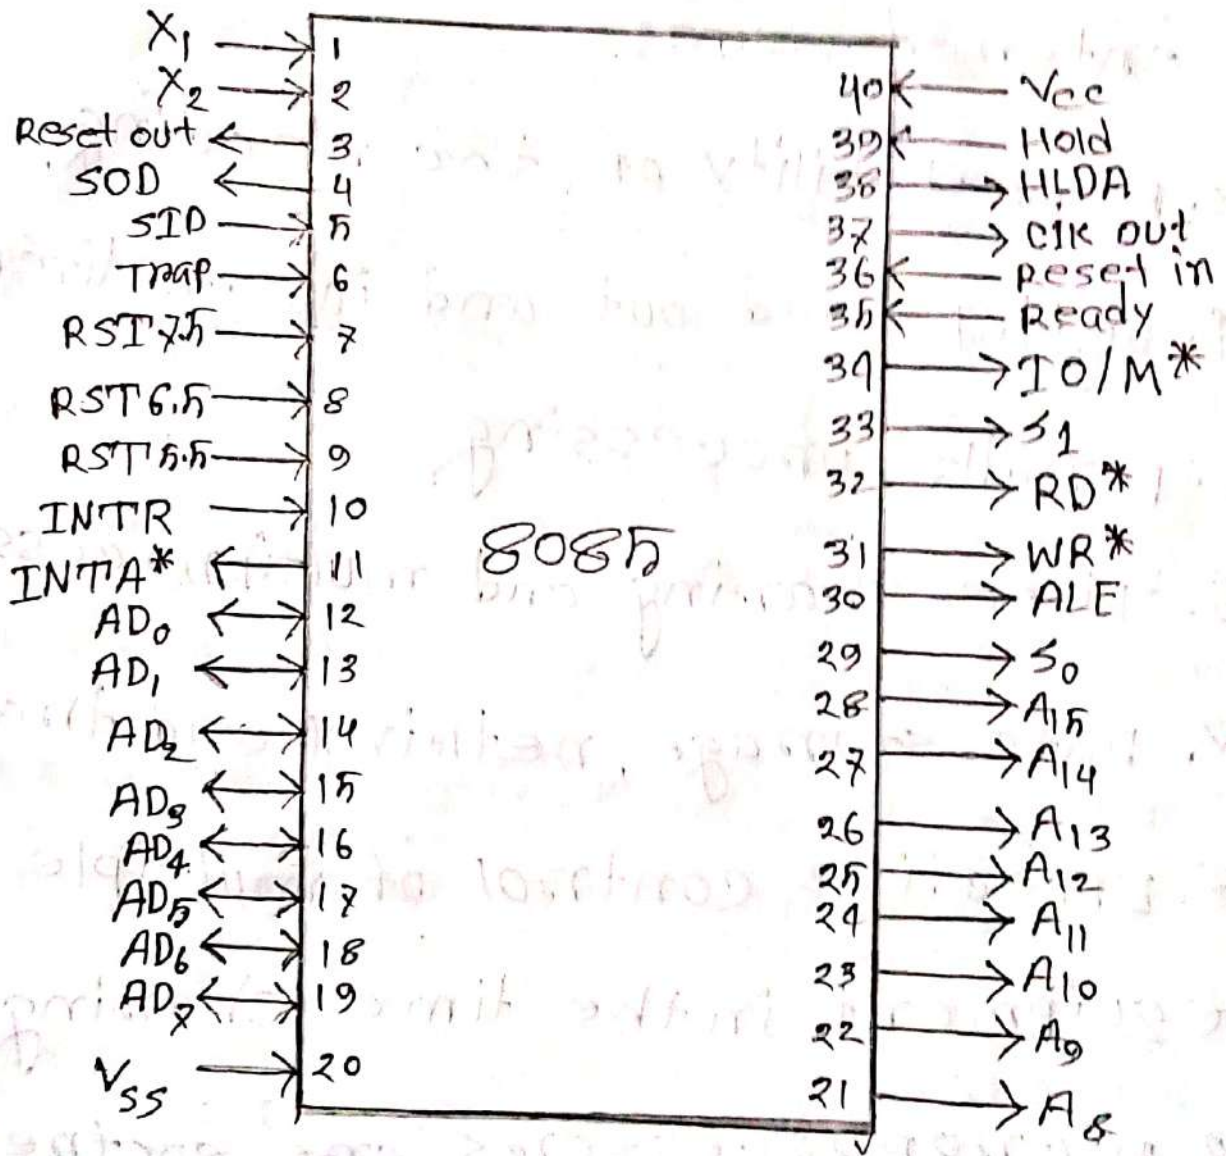 X1 1
X2 2
Reset out 3
SOD 4
SID 5
Trap 6
RST 7.5 7
RST 6.5 8
RST 5.5 9
INTR 10
INTA* 11
AD0 12
AD1 13
AD2 14
AD3 15
AD4 16
AD5 17
AD6 18
AD7 19
Vss 20
8085
40 Vcc
39 Hold
38 HLDA
37 Clk out
36 Reset in
35 Ready
34 IO/M*
33 S1
32 RD*
31 WR*
30 ALE
29 S0
28 A15
27 A14
26 A13
25 A12
24 A11
23 A10
22 A9
21 A8